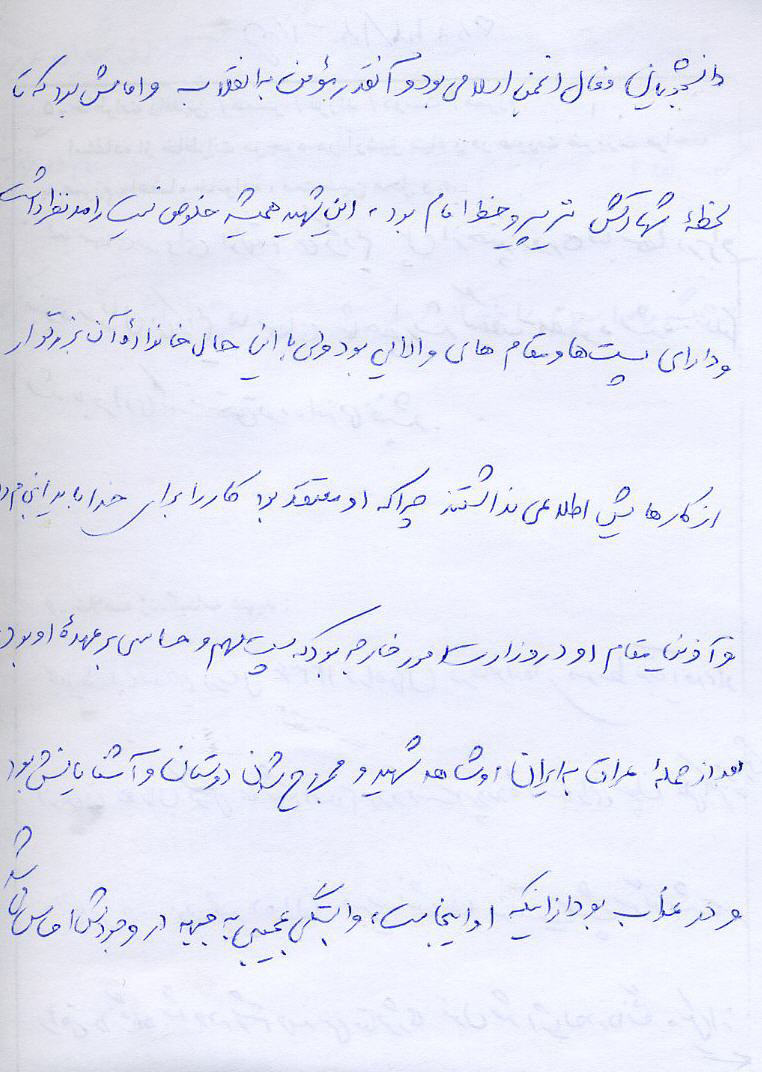 دانشجویان فعال انجمن اسلامی بود و آنقدر مؤمن به انقلاب و امامش بود که تا
لحظهٔ شهادتش نیز پیرو خط امام بود، این شهید همیشه خلوص نیت را مدنظر داشت
و دارای پست‌ها و مقام های والایی بود ولی با این حال خانوادهٔ آن بزرگوار
از کارهایش اطلاعی نداشتند چرا که او معتقد بود کار را برای خدا باید انجام داد
و آخرین مقام او در وزارت امور خارجه بود که پست مهم و حساسی بر عهدهٔ او بود.
بعد از حملهٔ عراق به ایران او شاهد شهید و مجروح شدن دوستان و آشنایانش بود
و در عذاب بود از اینکه او اینجاست، وابستگی عجیبی به جبهه در وجودش احساس